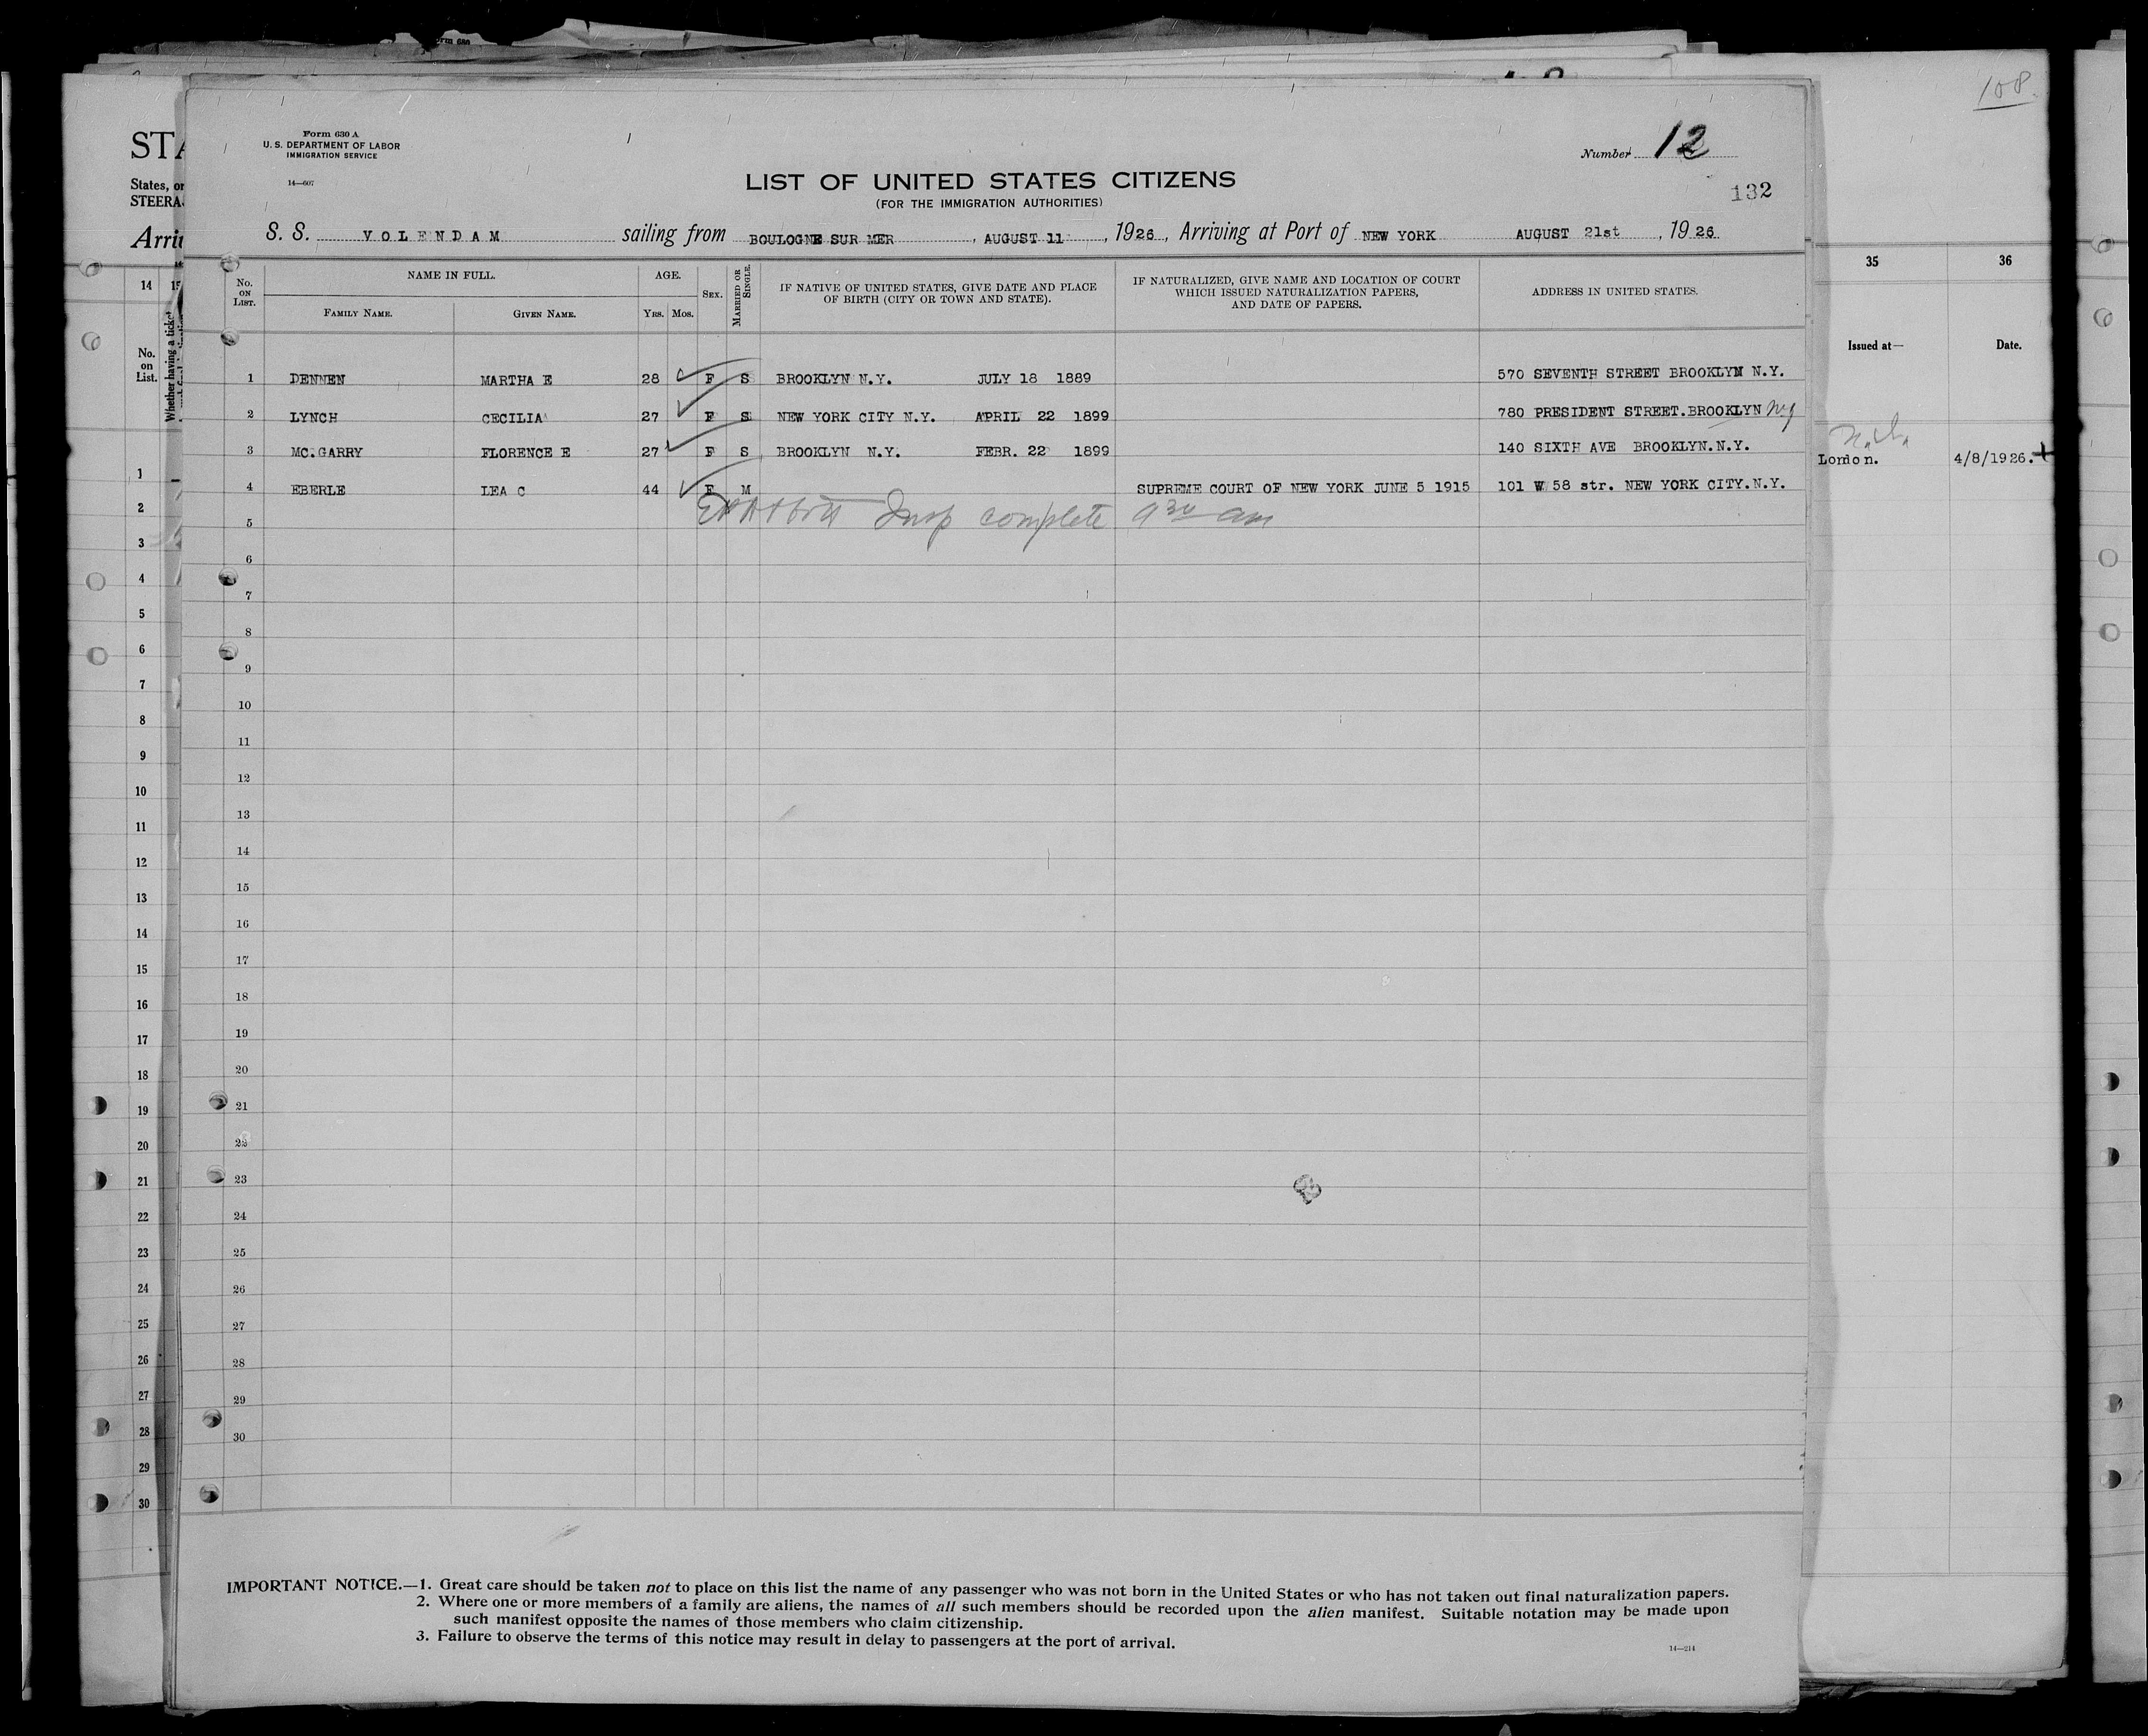 108
Form 630 A
U. S. DEPARTMENT OF LABOR
IMMIGRATION SERVICE
14—607
Number 12
132
LIST OF UNITED STATES CITIZENS
(FOR THE IMMIGRATION AUTHORITIES)
S. S. VOLENDAM sailing from BOULOGNE SUR MER, AUGUST 11, 1926, Arriving at Port of NEW YORK AUGUST 21st, 1926
No. ON LIST.
NAME IN FULL.
FAMILY NAME. GIVEN NAME.
AGE.
YRS. MOS.
SEX.
MARRIED OR SINGLE.
IF NATIVE OF UNITED STATES, GIVE DATE AND PLACE
OF BIRTH (CITY OR TOWN AND STATE).
IF NATURALIZED, GIVE NAME AND LOCATION OF COURT
WHICH ISSUED NATURALIZATION PAPERS,
AND DATE OF PAPERS.
ADDRESS IN UNITED STATES.
1 DENNEN MARTHA E 28 F S BROOKLYN N.Y. JULY 18 1889 570 SEVENTH STREET BROOKLYN N.Y.
2 LYNCH CECILIA 27 F S NEW YORK CITY N.Y. APRIL 22 1899 780 PRESIDENT STREET.BROOKLYN NY
3 MC.GARRY FLORENCE E 27 F S BROOKLYN N.Y. FEBR. 22 1899 140 SIXTH AVE BROOKLYN.N.Y.
4 EBERLE LEA C 44 F M SUPREME COURT OF NEW YORK JUNE 5 1915 101 W 58 str. NEW YORK CITY.N.Y.
5 Insp complete 9 30 am
6
7
8
9
10
11
12
13
14
15
16
17
18
19
20
21
22
23
24
25
26
27
28
29
30
IMPORTANT NOTICE.—1. Great care should be taken not to place on this list the name of any passenger who was not born in the United States or who has not taken out final naturalization papers.
2. Where one or more members of a family are aliens, the names of all such members should be recorded upon the alien manifest. Suitable notation may be made upon
such manifest opposite the names of those members who claim citizenship.
3. Failure to observe the terms of this notice may result in delay to passengers at the port of arrival.
14—214
STA
States, or
STEERA
Arri
14 15
No.
on
List.
Whether having a ticket
1
2
3
4
5
6
7
8
9
10
11
12
13
14
15
16
17
18
19
20
21
22
23
24
25
26
27
28
29
30
35 36
Issued at— Date.
London. 4/8/1926.